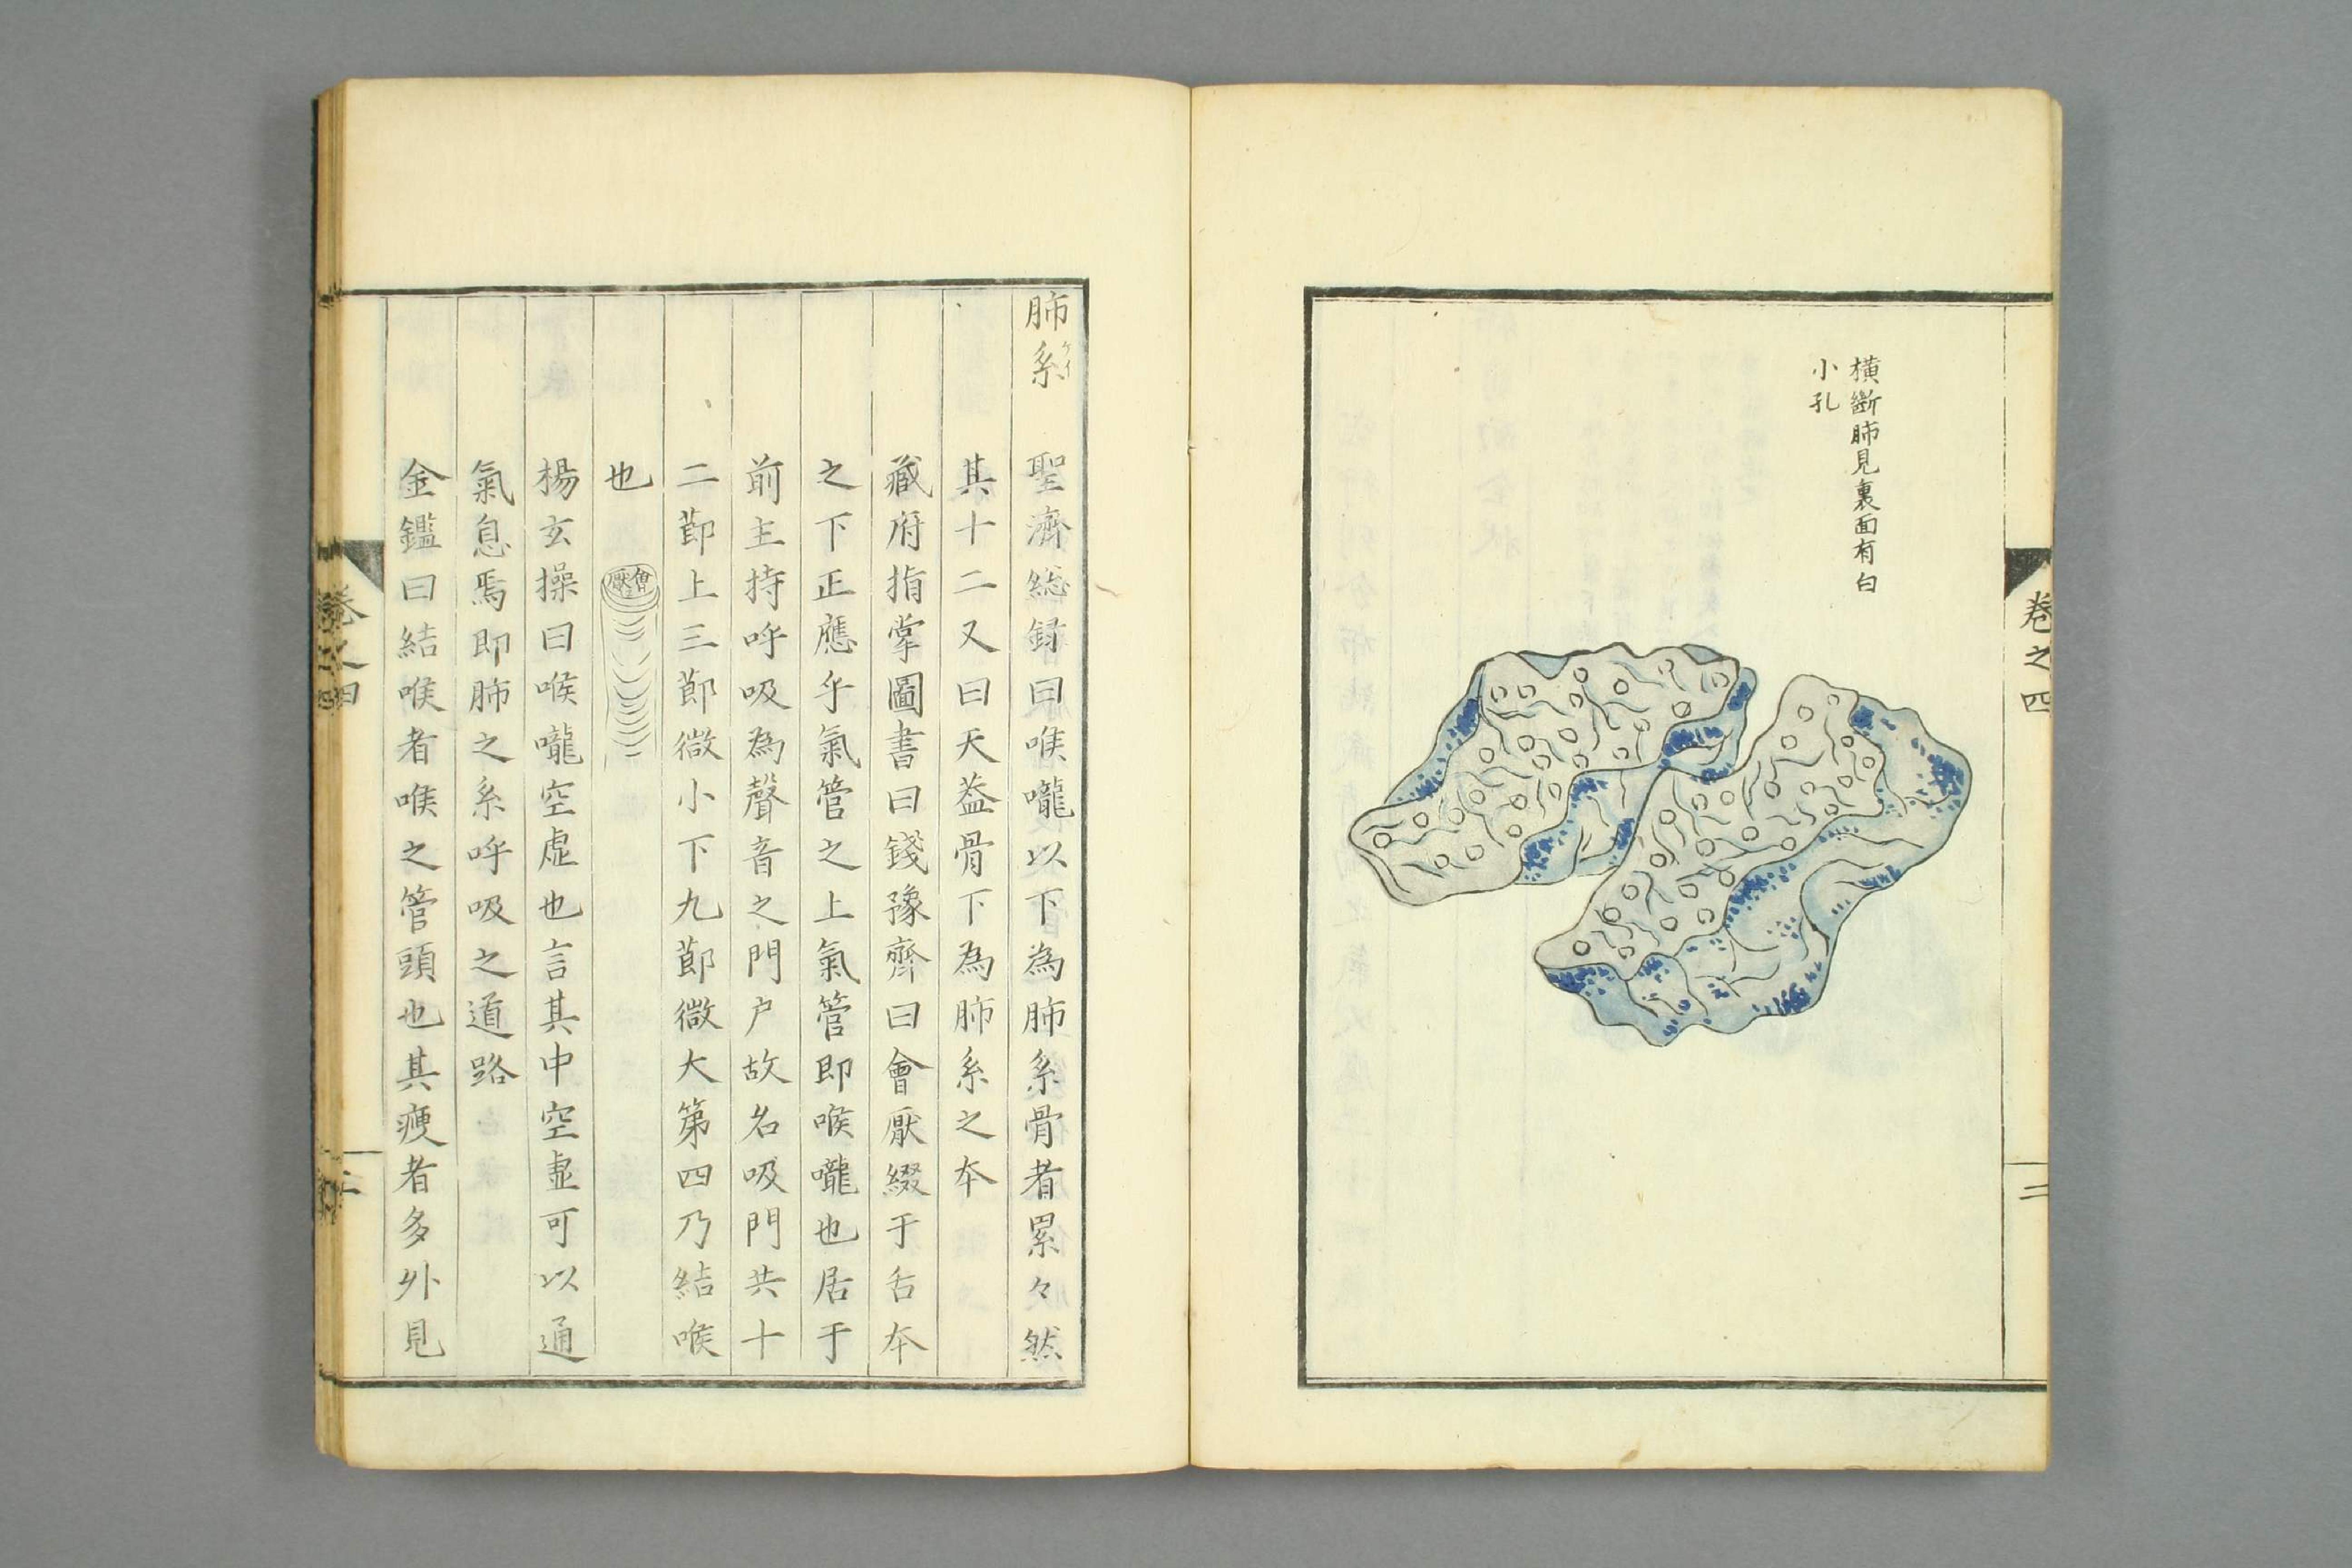 横斷肺見裏面有白
小孔
卷之四
二
肺系 聖濟総録曰喉嚨以下為肺系骨者累々然
其十二又曰天蓋骨下為肺系之本
藏府指掌圖書曰錢豫齊曰會厭綴于舌本
之下正應乎氣管之上氣管即喉嚨也居于
前主持呼吸為聲音之門户故名吸門共十
二莭上三莭微小下九莭微大第四乃結喉
也
會厭
楊玄操曰喉嚨空虛也言其中空虛可以通
氣息焉即肺之系呼吸之道路
金鑑曰結喉者喉之管頭也其瘦者多外見
卷之四